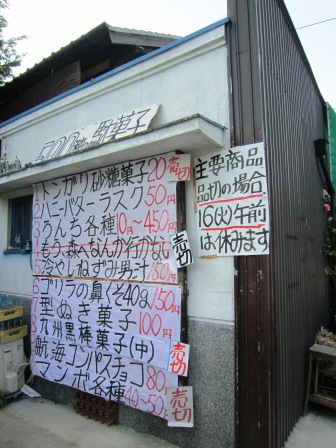 500種の駄菓子
1 ハンガリ砂糖菓子20
売切
2 ハニーバターラスク50円
3 うんち各種10円〜450円
4 もう、森へなんか行かない
5 冷やしねずみ男汁150円
売切
6 ゴリラの鼻くそ40g150円
7 型ぬき菓子100円
8 九州黒棒菓子(中)
売切
航海コンパスチョコ80
マンボ各種40〜50
売切
主要商品
品切の場合
16(火)午前
は休みます